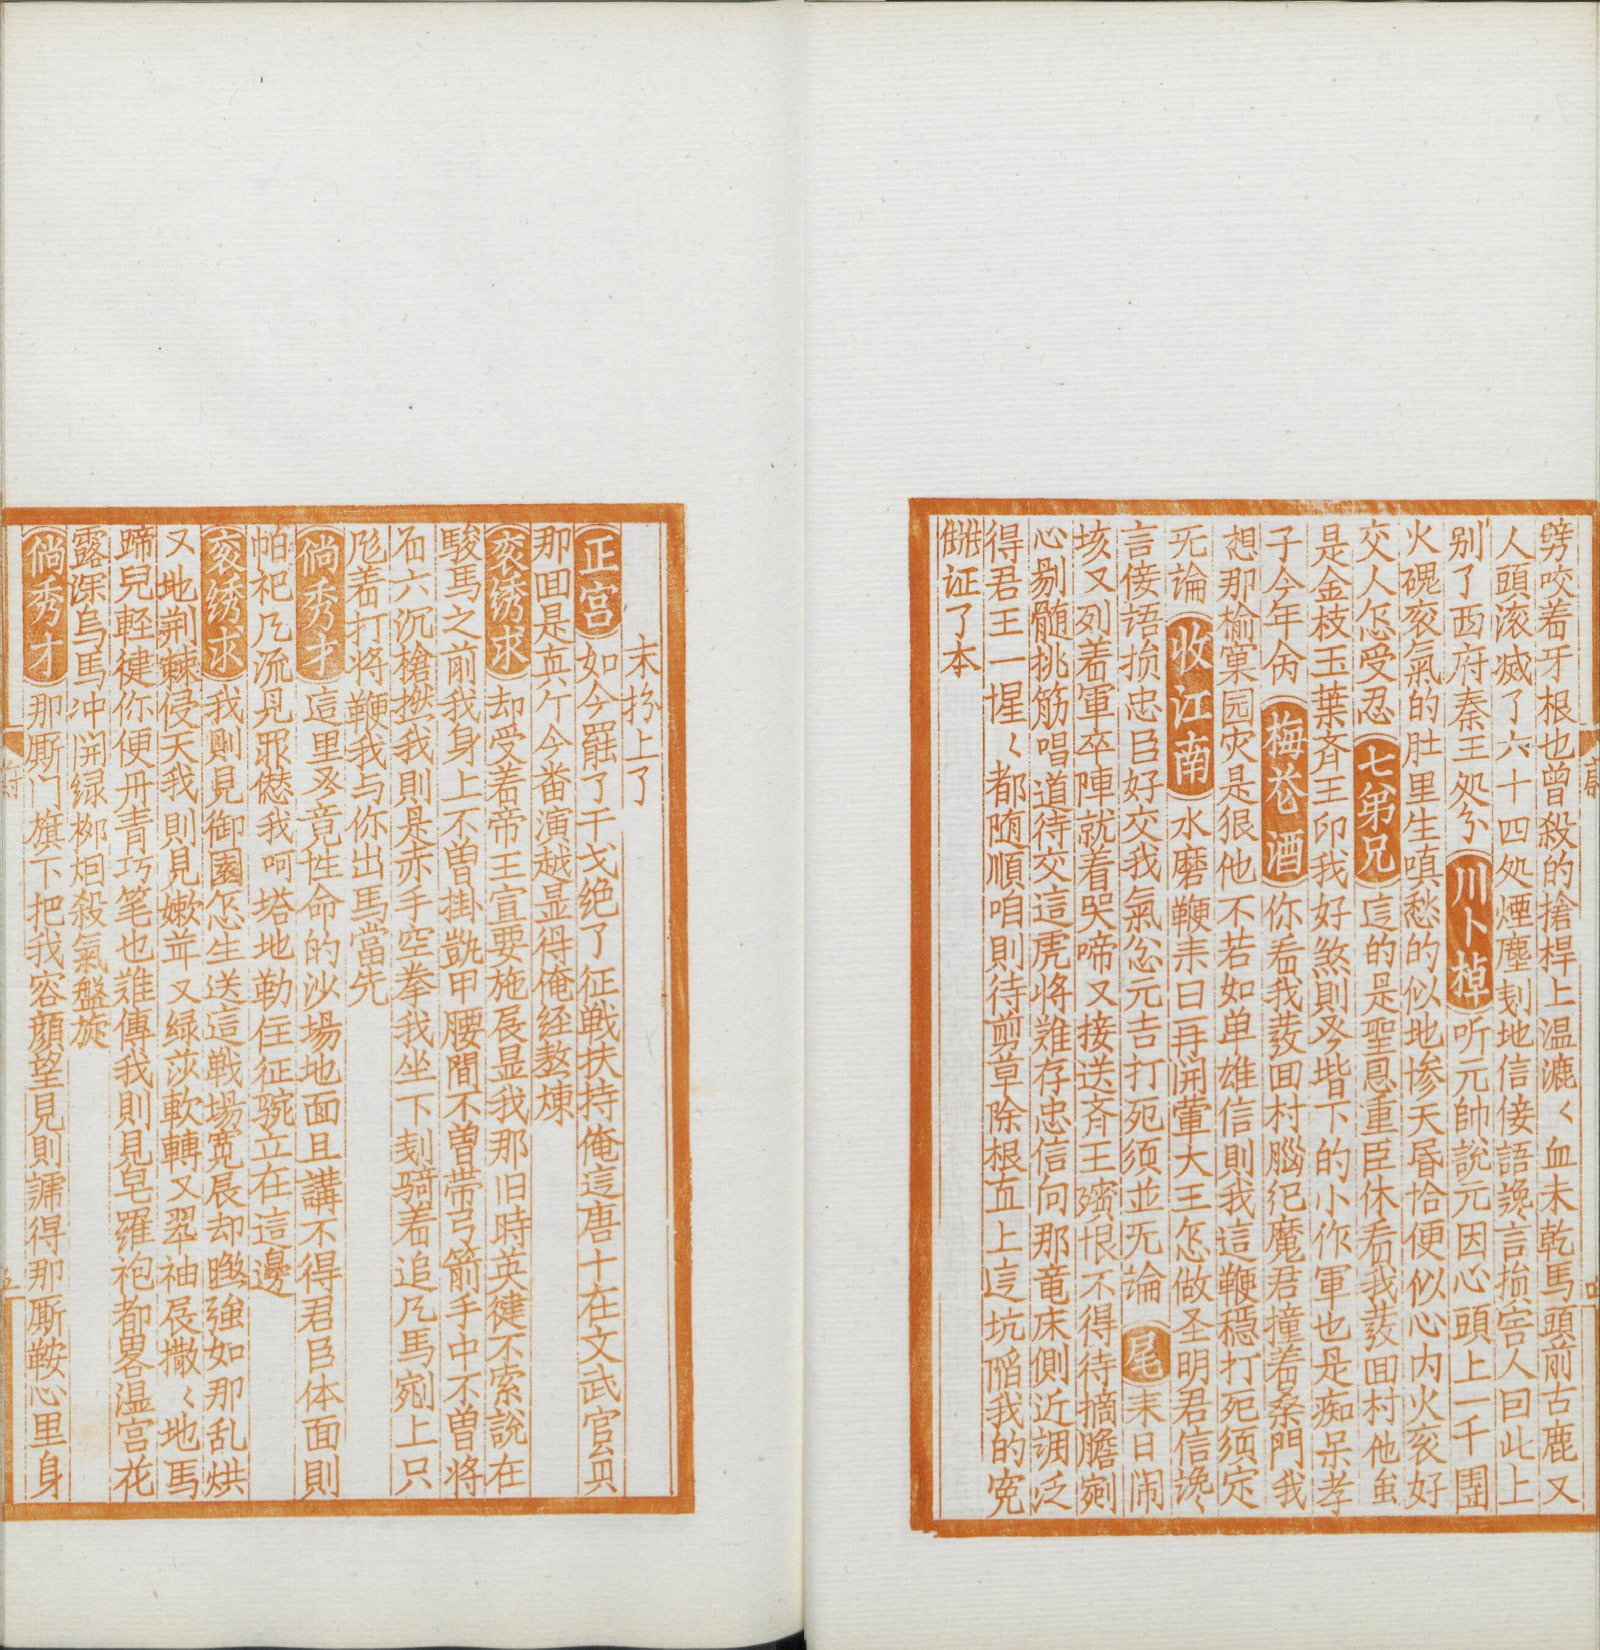 劈咬着牙根也曾殺的搶桿上温漉〻血未乾馬頭前古鹿又
人頭滚滅了六十四处煙塵刬地信倿語讒言損害人曰此上
别了西府秦王处分 川卜棹 听元帥說元因心頭上一千團
火磈衮氣的肚里生嗔愁的似地惨天昏恰便似心内火亥好
交人怎受忍 七弟兄 這的是聖恩重臣休看我𦲷面村他虽
是金枝玉葉斉王印我好煞則多堦下的小作軍也是痴呆孝
子今年伤 梅花酒 你看我𦲷面村腦纪魔君撞着桑門我
想那榆窠园灾是狠他不若如单雄信則我這鞭穏打死须定
死論 收江南 水磨鞭耒日再開葷大王怎做圣明君信讒〻
言倿語损忠臣好交我氣忿元吉打死须並无論 尾 耒日闹
垓又列着軍卒陣就着哭啼又接送斉王殯恨不得待摘膽剜
心剔髓挑筋唱道待交這虎将难存忠信向那竜床側近調泛
得君王一惺〻都随順咱則待剪草除根直上這坑陷我的寃
雠证了本
末扮上了
正宫 如今罷了干戈绝了征戦扶持俺這唐十在文武官员
那囬是真个今番演越显得俺经熬煉
衮绣求 却受着帝王宣要施展显我那旧時英健不索說在
駿馬之前我身上不曽掛凱甲腰間不曽带弓箭手中不曽将
石六沉槍撚我則是赤手空拳我坐下刬骑着追风馬剜上只
彪着打将鞭我与你出馬當先
倘秀才 這里多竟性命的沙場地面且講不得君臣体面則
帕祀凡流見罪愆我呵塔地勒住征𩢴立在這邊
衮绣求 我則見御園怎生送這戦場寛展却暾強如那乱烘
又地荆棘侵天我則見嫩並又绿莎軟轉又翠袖展撒〻地馬
蹄兒軽犍你便丹青巧笔也难傳我則見皂羅袍都畧温宫花
露深乌馬冲開绿栁烟殺氣盤旋
倘秀才 那厮门旗下把我容顔望見則諕得那厮鞍心里身